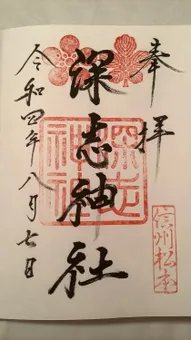 奉拝
深志神社
令和四年八月七日
深志神社
信州松本